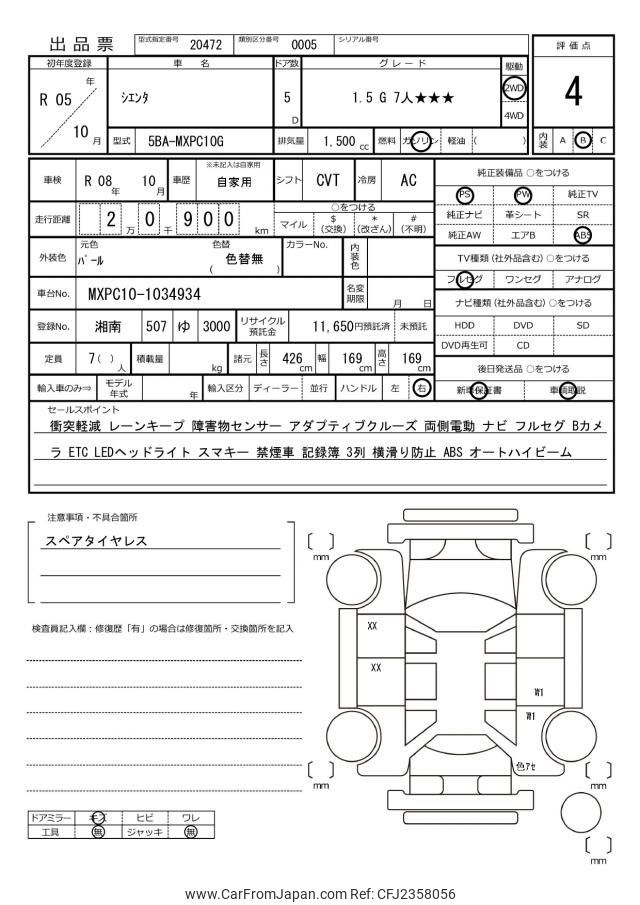 出品票 型式指定番号 20472 類別区分番号 0005 シリアル番号
評価点
4
内装 A B C
初年度登録 車名 ドア数 グレード 駆動
R 05 年 10 月 シエンタ 5 D 1.5 G 7人★★★ 2WD
4WD
型式 5BA-MXPC10G 排気量 1,500 cc 燃料 ガソリン 軽油 ( )
車検 R 08 年 10 月 車歴 ※未記入は自家用 自家用 シフト CVT 冷房 AC
走行距離 2 万 0 千 9 0 0 km
○をつける
マイル $ (交換) * (改ざん) # (不明)
外装色 元色 パール 色替 ( 色替無 ) カラーNo. 内装色
車台No. MXPC10-1034934 名変期限 月 日
登録No. 湘南 507 ゆ 3000 リサイクル預託金 11,650円預託済 未預託
定員 7 ( ) 人 積載量 kg 諸元 長さ 426 cm 幅 169 cm 高さ 169 cm
輸入車のみ⇒ モデル年式 年 輸入区分 ディーラー 並行 ハンドル 左 右
純正装備品 ○をつける
PS PW 純正TV
純正ナビ 革シート SR
純正AW エアB ABS
TV種類 (社外品含む) ○をつける
フルセグ ワンセグ アナログ
ナビ種類 (社外品含む) ○をつける
HDD DVD SD
DVD再生可 CD
後日発送品 ○をつける
新車保証書 車輌取説
セールスポイント
衝突軽減 レーンキープ 障害物センサー アダプティブクルーズ 両側電動 ナビ フルセグ Bカメ
ラ ETC LEDヘッドライト スマキー 禁煙車 記録簿 3列 横滑り防止 ABS オートハイビーム
注意事項・不具合箇所
スペアタイヤレス
検査員記入欄：修復歴「有」の場合は修復箇所・交換箇所を記入
mm
mm
XX
XX
W1
W1
色アセ
mm
mm
mm
ドアミラー キズ ヒビ ワレ
工具 無 ジャッキ 無
www.CarFromJapan.com Ref: CFJ2358056